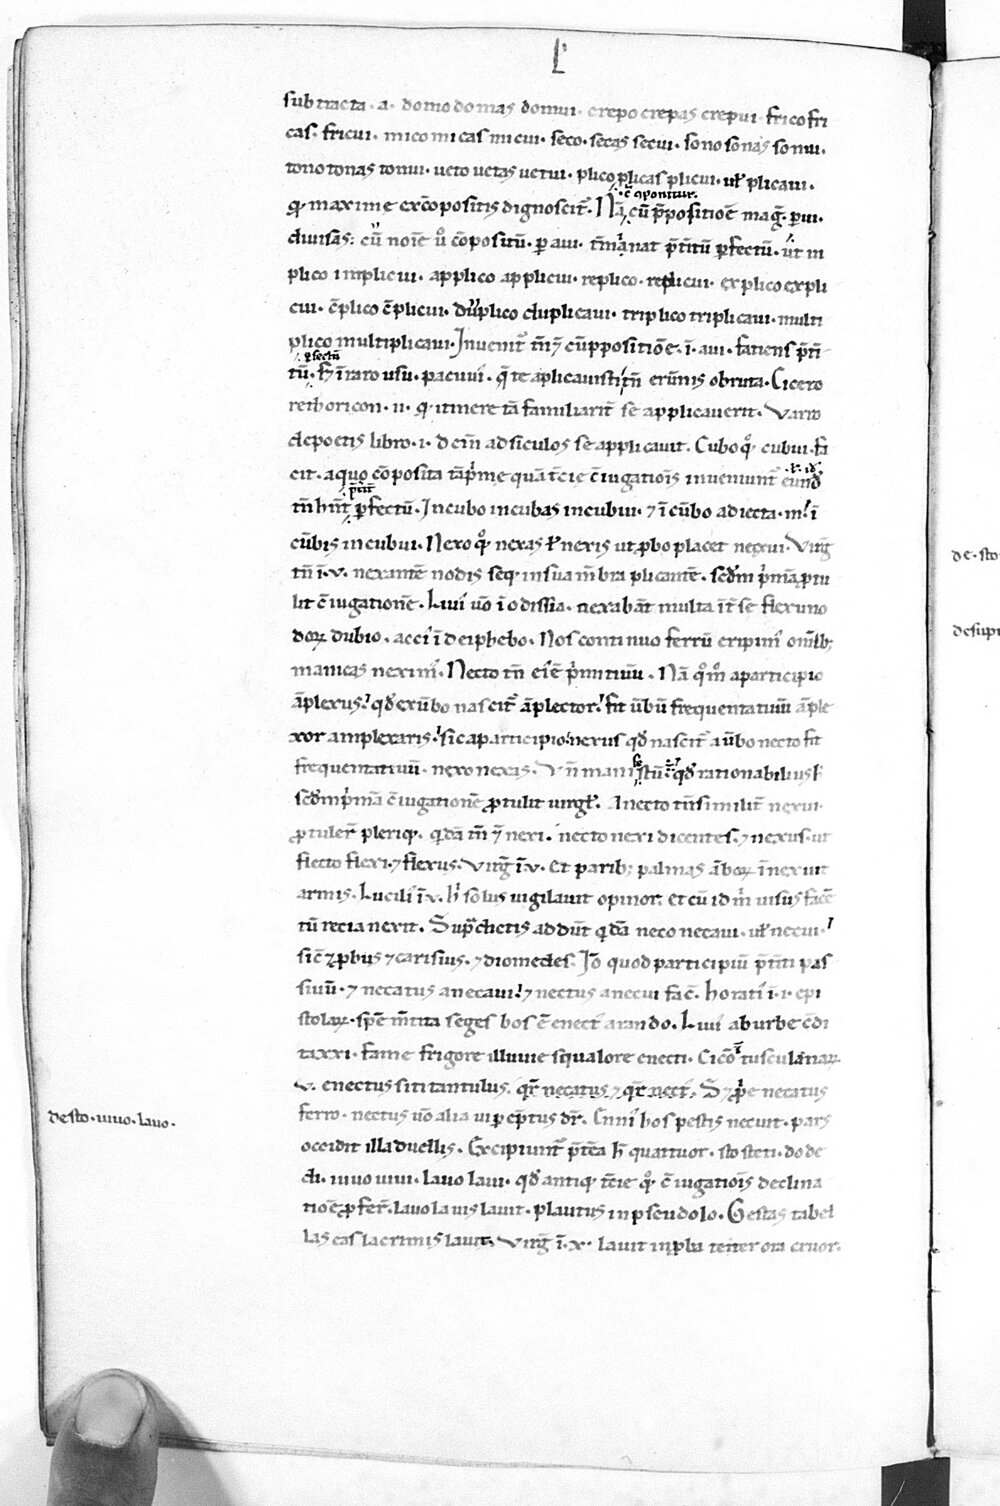 L'
subtracta · a · domo domas domui · crepo crepas crepui · frico fri
cas · fricui · mico micas micui · seco · secas secui · sono sonas sonui ·
tono tonas tonui · ueto uetas uetui · plico plicas plicui · uł plicaui ·
maxime exc̄positis dignoscit᷑ · Nā cū p̄positiōe maḡ · p̲ ui ·
diuisas: cū noīe ū̊ cōpositū · p̲ aui · t̄minat p̄t̄itū p̲fectū · ut in
plico implicui · applico applicui · replico · replicui · explico expli
cui · c̄plico c̄plicui · duplico duplicaui · triplico triplicaui · multi
plico multiplicaui · Inuenit᷑ tn̄ ⁊ cū p̲positiōe · ī · aui · fatiens p̄t̄i
tū · ī raro usu · pacuui · q̄ te aplicauisti tn̄ erūnis obruta · Cicero
rethoricon · ii · itinere tā familiarit᷑ se applicauerit · Varro
depoetis libro · i · dein̄ ad siculos se applicauit · Cubo q̊ꝫ cubui · fa
cit · a quo cōposita tā p̓me quā t̄cie c̄iugatiōis inueniunt᷑ eund̄
tn̄ hn̄t p̲fectū · Incubo incubas incubui · ⁊ ī cūbo adiecta · m ! ī
cūbis incubui · Nexo q̊ꝫ nexas ł nexis ut p̲bo placet nexui · Virḡ
tn̄ ī · v · nexantē nodis seq̨ in sua m̄bra plicantē · sc̄dm p̓mā ꝓtu
lit c̄iugationē · Liui ū̊o ī odissia · nexabāt multa īt̄ se flexu no
doꝝ dubio · acci ī deiphebo · Nos continuo ferrū eripimꝰ omībꝫ
manicas neximꝰ · Necto tn̄ ei᷑ ē p̓mitiuū · Nā q̊m̊ a participio
āplexus ! qd̄ ex ūbo nascit᷑ āplector ! fit ūbū frequentatiuū āple
xor amplexaris ! sic a participio nexus qd̄ nascit᷑ a ūbo necto fit
frequentatiuū · nexo nexas · Vn̄ manifestū qd̄ rationabilius
sc̄dm p̓mā c̄iugationē ꝓtulit uirgł · A necto tn̄ similit᷑ nexui ·
ꝓtuler̄ pleriqꝫ · qdā tn̄ ⁊ nexi · necto nexi dicentes · ⁊ nexus · ut
flecto flexi · ⁊ flexus · Virḡ ī · v · Et paribꝫ palmas āboꝝ īnexuit
armis · Lucilī ī · v · h᷑ solus uigilauit opinor · et cū id m̓ uisus facē
tū recia nexit · Sup̲ dictis addūt qdā neco necaui · uł necui ·
sic̄ ⁊ p̲bus ⁊ carisius · ⁊ diomedes · Iō quod participiū p̄t̄iti pas
siuū · ⁊ necatus a necaui ! ⁊ nectus a necui fac̄ · horati ī · i · epi
stolaꝝ · spē m̄tita seges bos ē enectꝰ arando · Liui ab urbe c̄di
ta xxi · fame frigore illuuie squalore enecti · Cicō ī tusculanaꝝ
v · enectus siti tantulus · qr̄ necatus ⁊ qr̄ nectꝰ · S ⁊ p̲prie necatus
ferro · nectus ū̊o alia ui p̲ēptus dr̄ · Enniꝰ hos pestis necuit · pars
occidit illa duellis · Excipiunt᷑ p̄t̄ea h᷑ quattuor · sto steti · do de
di · iuuo iuui · lauo laui · qd̄ antiq̨ t̄cie q̊ꝫ c̄iugatiōis declina
tiōe ꝓfer̄ · lauo lauis lauit · plautus in pseudolo · Gestas tabel
las eas lacrimis lauit · Virḡ ī · x · lauit īproba teter ora cruor ·
ē ꝯponitur ·
p̲fectū
desto · iuuo · lauo ·
de · sto